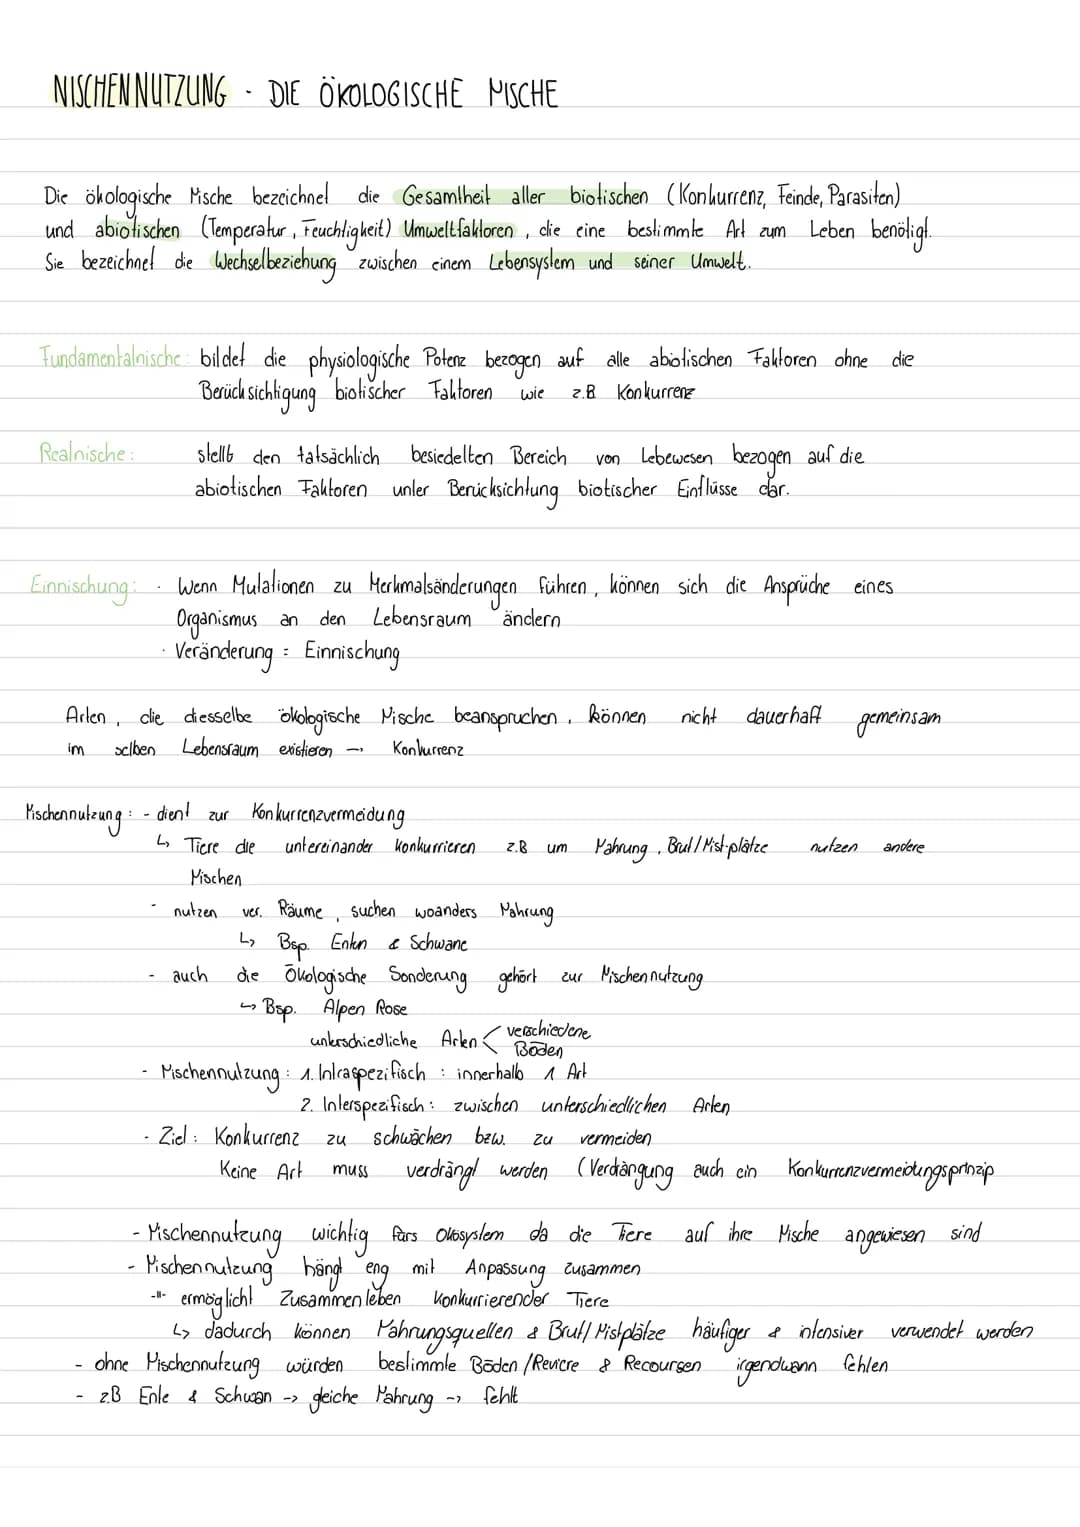 NISCHENNUTZUNG - DIE ÖKOLOGISCHE NISCHE
Die ökologische Nische bezeichnet die Gesamtheit aller biotischen (Konkurrenz, Feinde, Parasiten)
und abiotischen (Temperatur, Feuchtigkeit) Umweltfaktoren, die eine bestimmte Art zum Leben benötigt.
Sie bezeichnet die Wechselbeziehung zwischen einem Lebensystem und seiner Umwelt.
Fundamentalnische: bildet die physiologische Potenz bezogen auf alle abiotischen Faktoren ohne die
Berücksichtigung biotischer Faktoren wie z.B Konkurrenz
Realnische: stellt den tatsächlich besiedelten Bereich von Lebewesen bezogen auf die
abiotischen Faktoren unter Berücksichtung biotischer Einflüsse dar.
Einnischung: · Wenn Mutationen zu Merkmalsänderungen führen, können sich die Ansprüche eines
Organismus an den Lebensraum ändern
· Veränderung = Einnischung
Arten, die diesselbe ökologische Nische beanspruchen, können nicht dauerhaft gemeinsam
im selben Lebensraum existieren → Konkurrenz
Nischennutzung: - dient zur Konkurrenzvermeidung
↳ Tiere die untereinander konkurrieren z.B um Nahrung, Brut/Nist-plätze nutzen andere
Nischen
- nutzen ver. Räume, suchen woanders Nahrung
↳ Bsp. Enten & Schwäne
- auch die Ökologische Sonderung gehört zur Nischennutzung
↳ Bsp. Alpen Rose
unterschiedliche Arten < verschiedene
Böden
- Nischennutzung: 1. Intraspezifisch: innerhalb 1 Art
2. Interspezifisch: zwischen unterschiedlichen Arten
- Ziel: Konkurrenz zu schwächen bzw. zu vermeiden
Keine Art muss verdrängt werden (Verdrängung auch ein Konkurrenzvermeidungsprinzip
- Nischennutzung wichtig fürs Ökosystem da die Tiere auf ihre Nische angewiesen sind
- Nischennutzung hängt eng mit Anpassung zusammen
-"- ermöglicht Zusammenleben konkurrierender Tiere
↳ dadurch können Nahrungsquellen & Brut/Nistplätze häufiger & intensiver verwendet werden
- ohne Nischennutzung würden bestimmte Böden/Reviere & Recoursen irgendwann fehlen
- z.B Ente & Schwan -> gleiche Nahrung -> fehlt